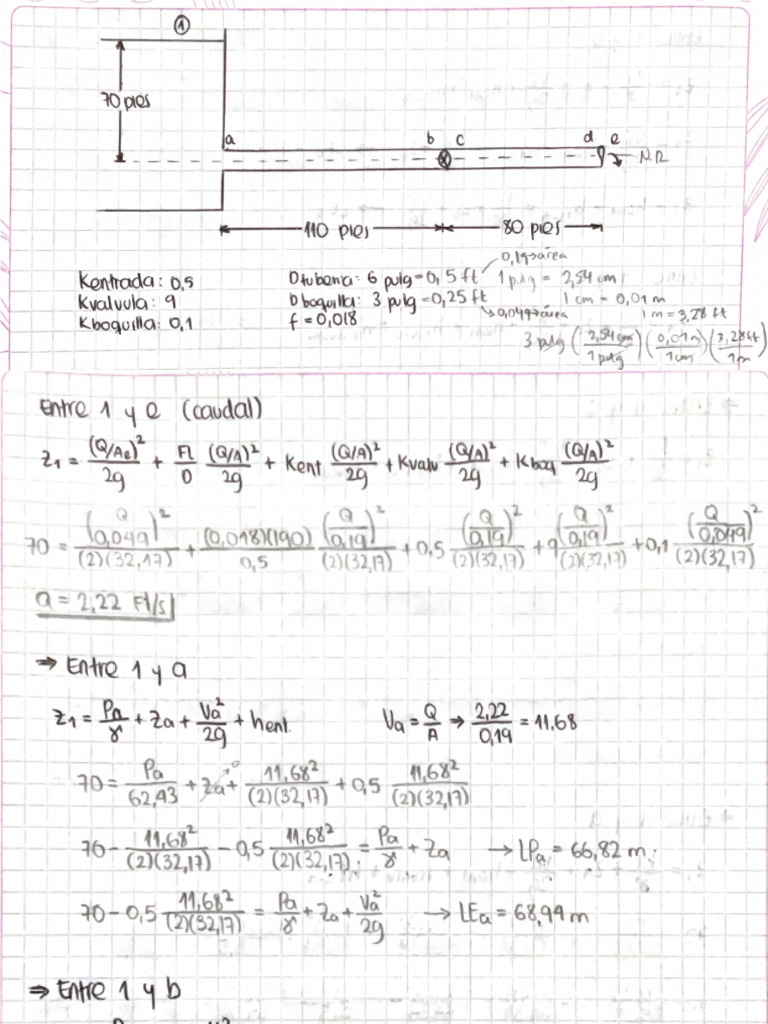 ①
70 pies
a b c d e N.R
110 pies 80 pies
Kentrada: 0,5
Kvalvula: 9
Kboquilla: 0,1
Dtuberia: 6 pulg = 0,5 ft → 0,19 → área
D boquilla: 3 pulg = 0,25 ft → 0,049 → área
f = 0,018
1 pulg = 2,54 cm
1 cm = 0,01 m
1 m = 3,28 ft
3 pulg (2,54 cm / 1 pulg) (0,01 m / 1 cm) (3,28 ft / 1 m)
Entre 1 y e (caudal)
z₁ = (Q/Ae)²/2g + FL/D (Q/A)²/2g + Kent (Q/A)²/2g + Kvalv (Q/A)²/2g + Kboq (Q/A)²/2g
70 = (Q/0,049)²/(2)(32,17) + (0,018)(190)/0,5 (Q/0,19)²/(2)(32,17) + 0,5 (Q/0,19)²/(2)(32,17) + 9 (Q/0,19)²/(2)(32,17) + 0,1 (Q/0,049)²/(2)(32,17)
Q = 2,22 Ft/s
⇒ Entre 1 y a
z₁ = Pa/γ + Za + Va²/2g + hent. Va = Q/A ⇒ 2,22/0,19 = 11.68
70 = Pa/62,43 + Za↗0 + 11,68²/(2)(32,17) + 0,5 11,68²/(2)(32,17)
70 - 11,68²/(2)(32,17) - 0,5 11,68²/(2)(32,17) = Pa/γ + Za → LPa = 66,82 m.
70 - 0,5 11,68²/(2)(32,17) = Pa/γ + Za + Va²/2g → LEa = 68,94 m
⇒ Entre 1 y b